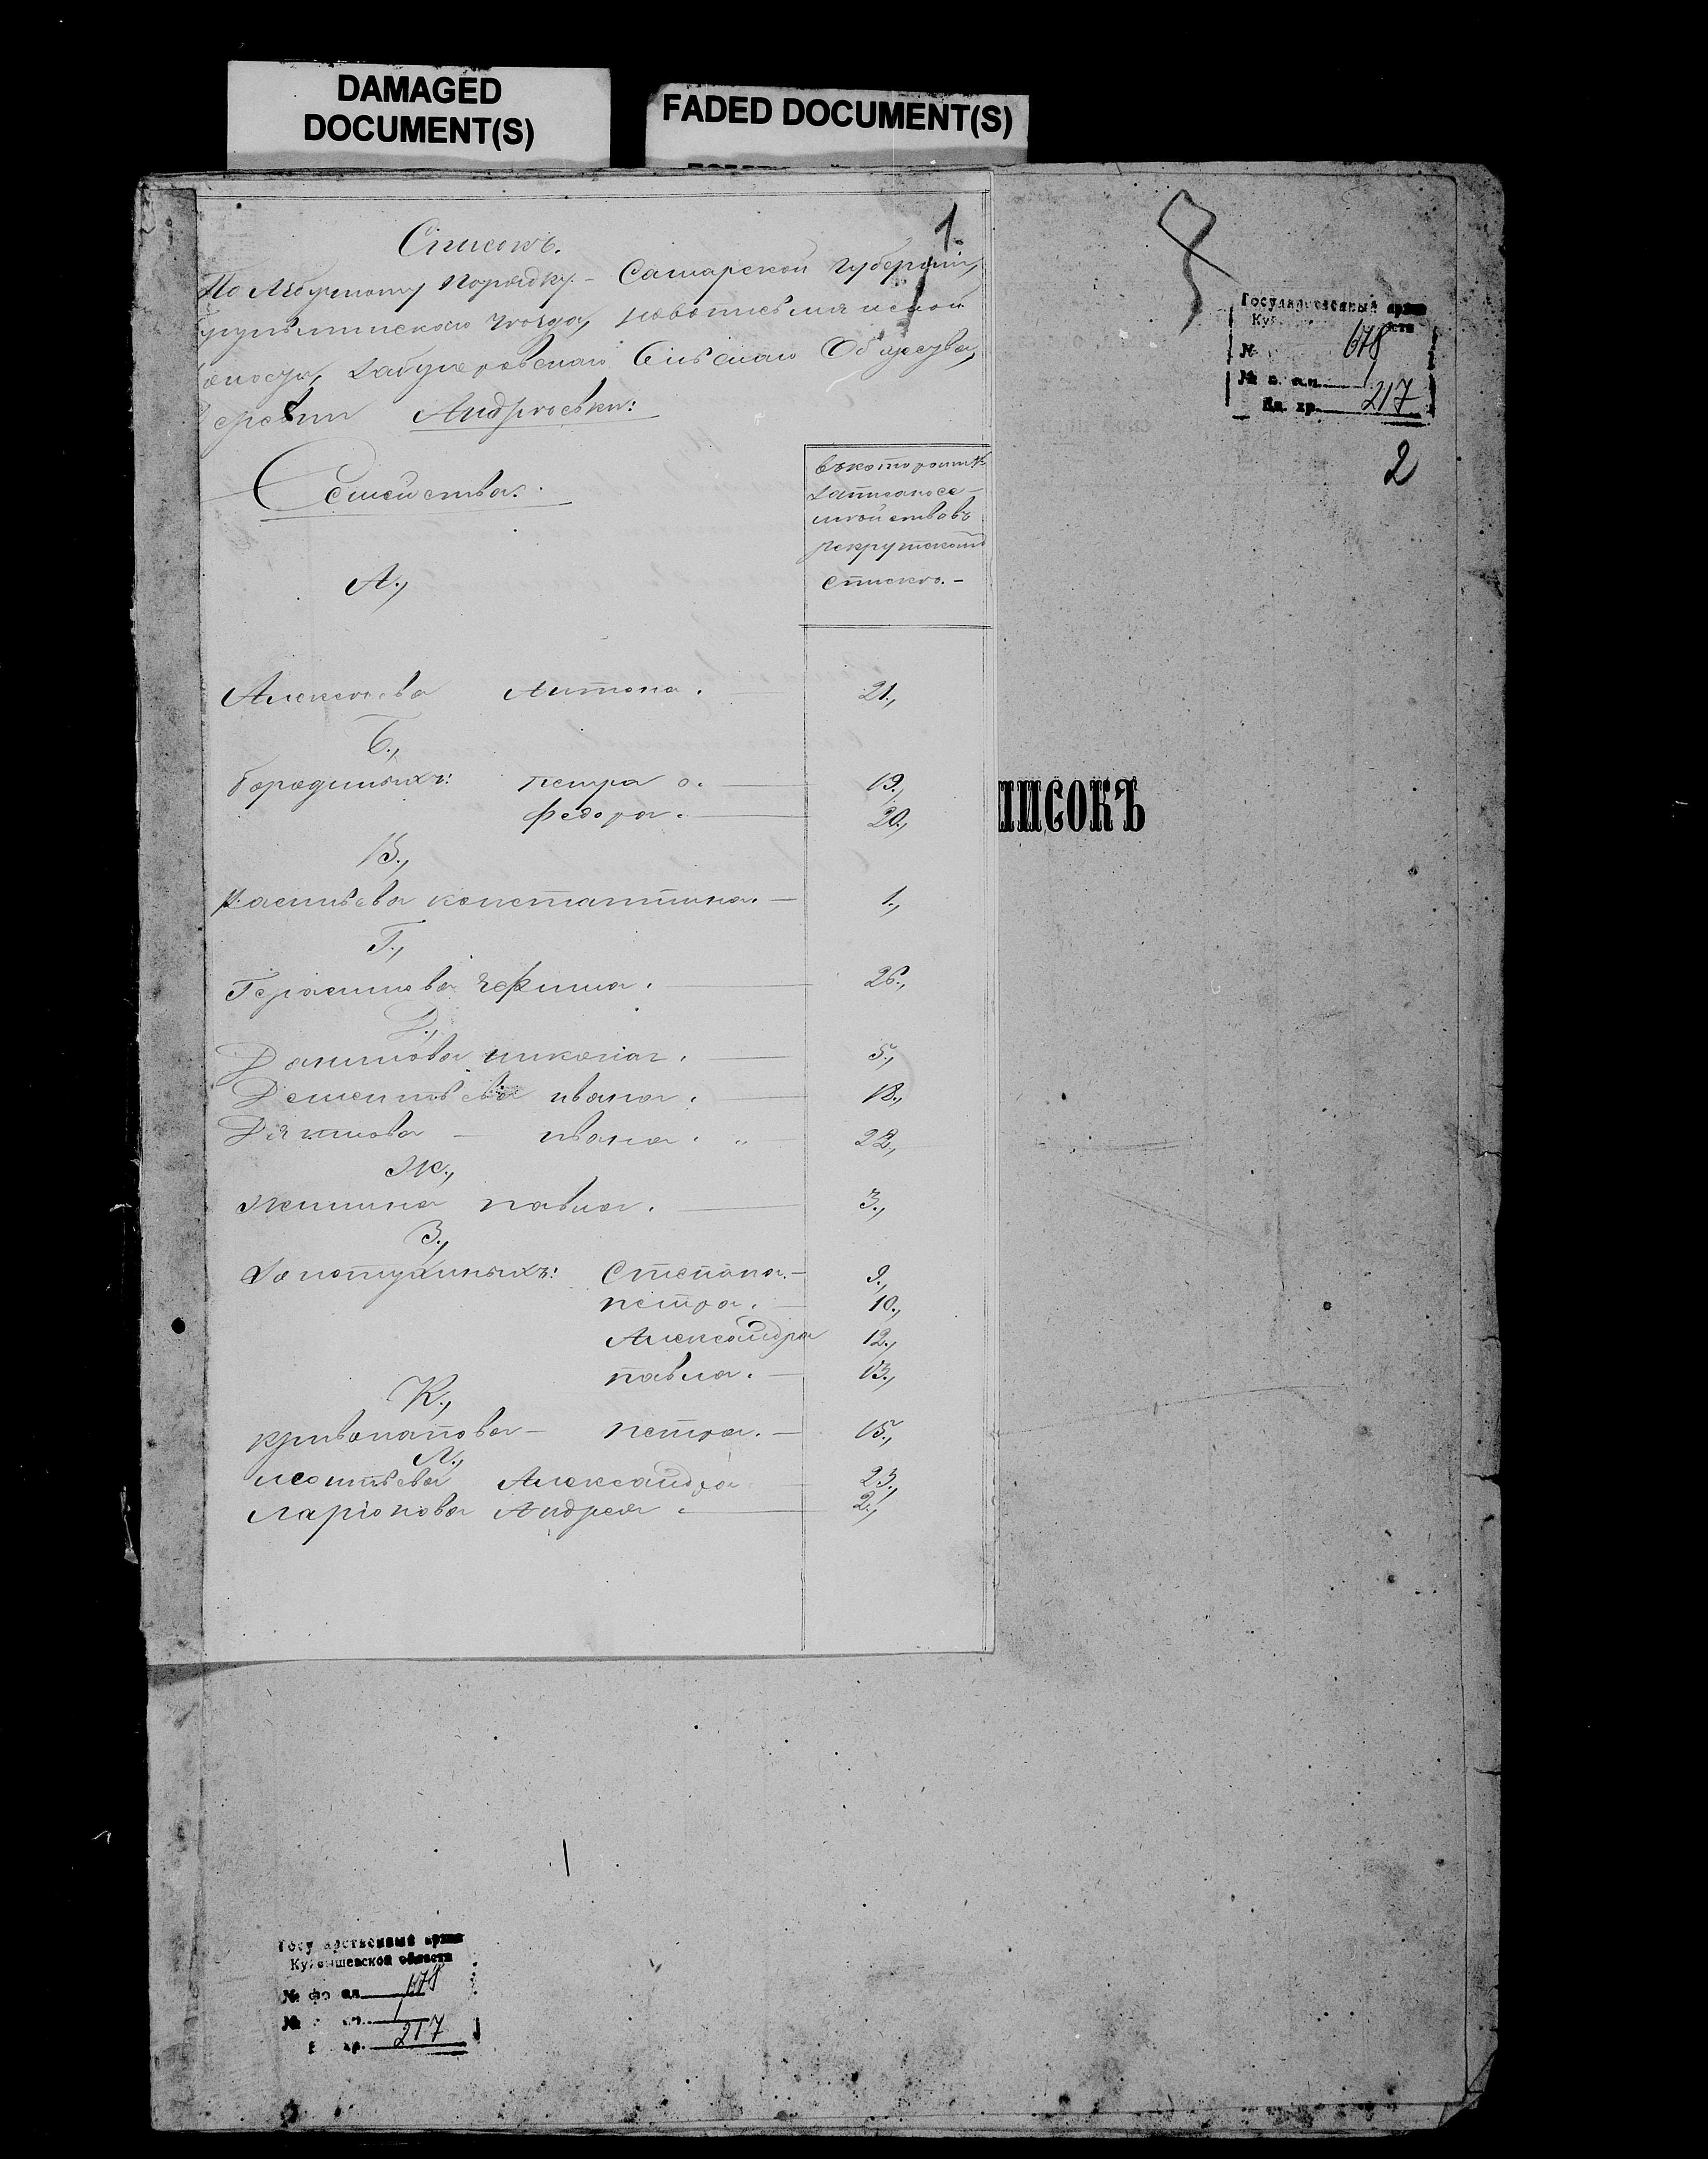 DAMAGED
DOCUMENT(S)
FADED DOCUMENT(S)
1.
Списокъ.
По Азбучному порядку - Самарской губерніи,
гульминскаго уѣзда, новописьмянской
волости, Сельскаго Общества,
деревни Андрѣевки:
Семейства.
въ которомъ №
записано се-
мѣйство въ
рекрутскомъ
спискѣ. -
А.,
Алексѣева Антона. 21.,
Б.,
Бородиныхъ: петра 19.,
федора. 20.,
В.,
Васильева константина. - 1.,
Г.,
Герасимова ефима. 26.,
Д.,
Данилова николая. 5.,
Дементьева ивана. 18.,
ивана. 22.,
Ж.,
Жилина павла. 3.,
З.,
Степана. - 9.,
петра. - 10.,
Александра 12.,
павла. - 13.,
К.,
кривопапова - петра. - 15.,
Л.,
леонтьева Александра 23.,
ларіонова Андрея 2.,
ПИСОКЪ
Государственный архив
№ 678
№ 1
Ед. хр. 217
2
1
Государственный архив
Куйбышевской области
№ фонда 678
№ 1
хр. 217